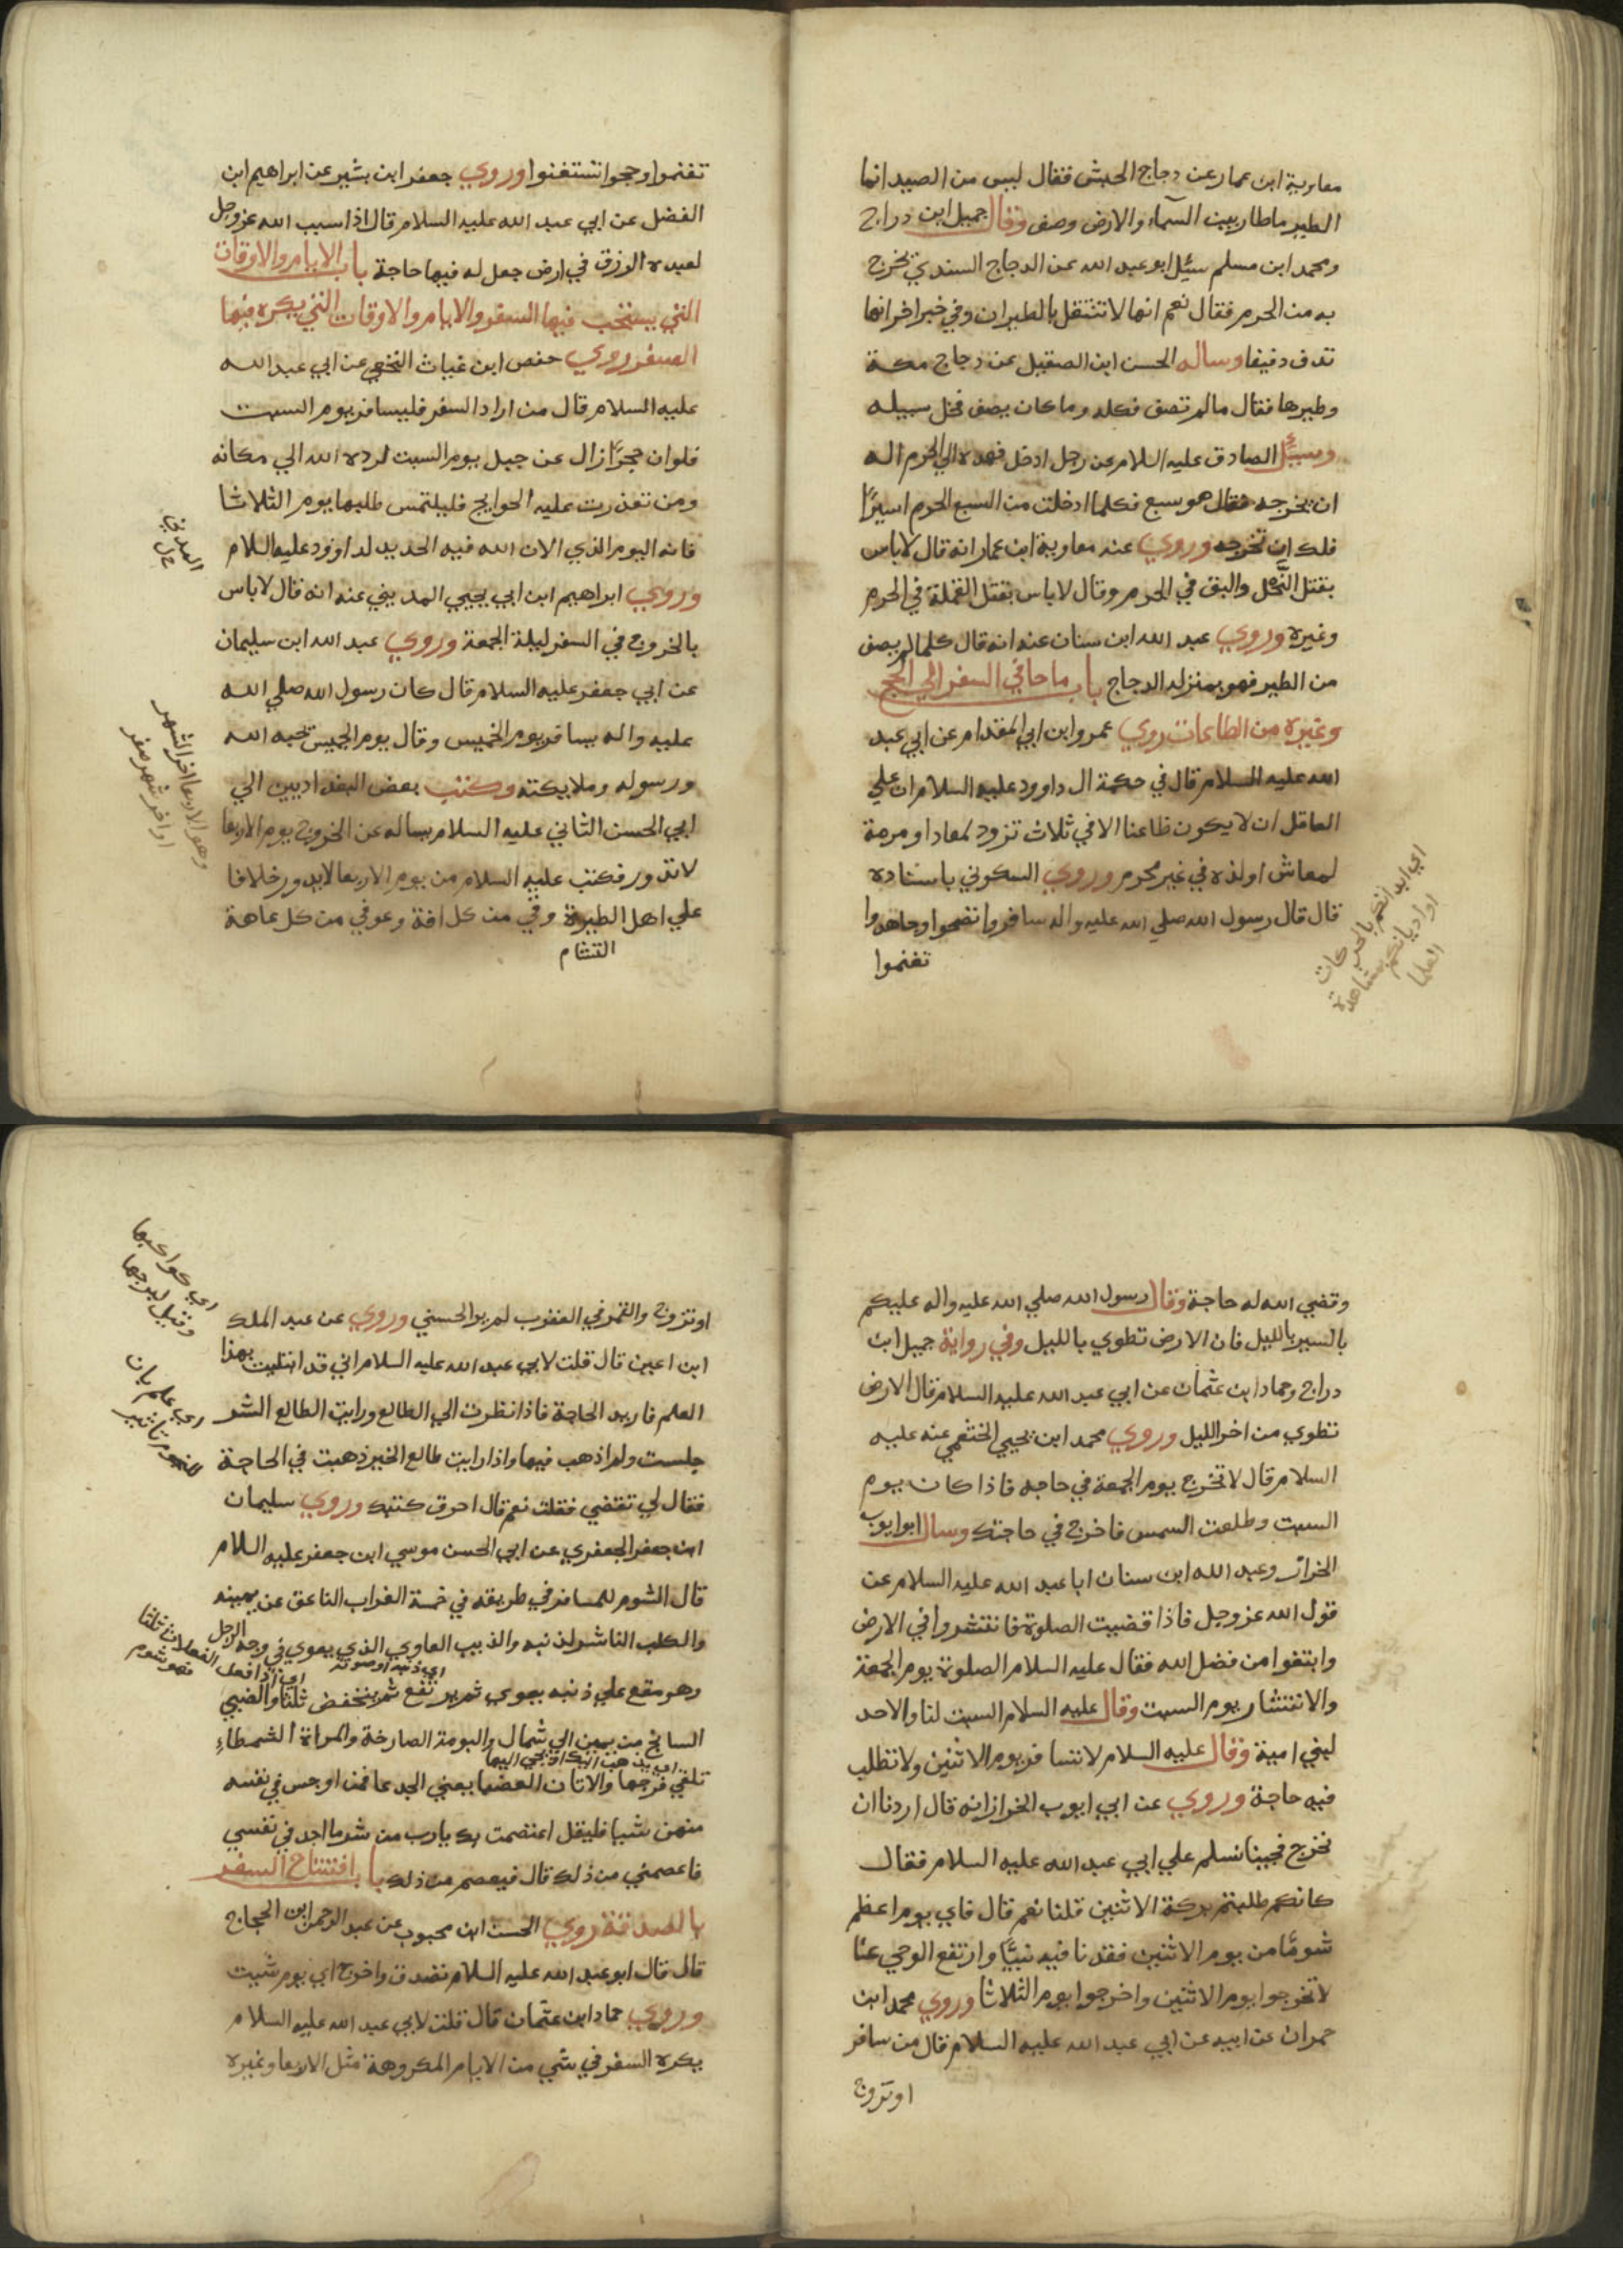 معاوية ابن عمار عن دجاج الحبش فقال ليس من الصيد انما
الطير ماطار بين السمآء والارض وصف وقال جميل ابن دراج
ومحمد ابن مسلم سئل ابو عبد الله عن الدجاج السندي يخرج
به من الحرم فقال نعم انها لا تستقل بالطيران وفي خبر اخر انها
تدف دفيفا وساله الحسن ابن الصيقل عن دجاج مكة
وطيرها فقال مالم تصف فكله وما كان يصف فخل سبيله
وسئل الصادق عليه السلام عن رجل ادخل فهده الي الحرم اله
ان يخرجه فقال هو سبع فكلما ادخلت من السبع الحرم اسيرًا
فلك ان تخرجه وروي عنه معاوية ابن عمار انه قال لا باس
بقتل النمل والبق في الحرم وقال لا باس بقتل القملة في الحرم
وغيره وروي عبد الله ابن سنان عنه انه قال كلما لم يصف
من الطير فهو بمنزلة الدجاج باب ما جا في السفر الي الحج
وغيره من الطاعات روي عمرو ابن ابي المقدام عن ابي عبد
الله عليه السلام قال في حكمة ال داوود عليه السلام ان علي
العاقل ان لا يكون ظاعنا الا في ثلاث تزود لمعاد او مرمة
لمعاش او لذه في غير محرم وروي السكوني باسناده
قال قال رسول الله صلي الله عليه واله سافروا تصحوا وجاهدوا
تغنموا
اي ابدانكم بالحركات
او اديانكم بمشاهدة
العلما
تغنموا وحجوا تستغنوا وروي جعفر ابن بشير عن ابراهيم ابن
الفضل عن ابي عبد الله عليه السلام قال اذا سبب الله عز وجل
لعبده الرزق في ارض جعل له فيها حاجة باب الايام والاوقات
التي يستحب فيها السفر والايام والاوقات التي يكره فيها
السفر روي حفص ابن غياث النخعي عن ابي عبد الله
عليه السلام قال من اراد السفر فليسافر يوم السبت
فلو ان حجرًا زال عن جبل يوم السبت لرده الله الي مكانه
ومن تعذرت عليه الحوايج فليلتمس طلبها يوم الثلاثا
فانه اليوم الذي الان الله فيه الحديد لداوود عليه السلام
وروي ابراهيم ابن ابي يحيي المديني عنه انه قال لا باس
بالخروج في السفر ليلة الجمعة وروي عبد الله ابن سليمان
عن ابي جعفر عليه السلام قال كان رسول الله صلي الله
عليه واله يسافر يوم الخميس وقال يوم الخميس تحبه الله
ورسوله وملايكته وكتب بعض البغداديين الي
ابي الحسن الثاني عليه السلام يساله عن الخروج يوم الاربعا
لا تدور فكتب عليه السلام من يوم الاربعا لا يدور خلافا
علي اهل الطيرة وقي من كل افة وعوفي من كل عاهة
التشام
المدني
وهو الاربعا اخر الشهر
او اخر شهر صفر
وقضي الله له حاجة وقال رسول الله صلي الله عليه واله عليكم
بالسير بالليل فان الارض تطوي بالليل وفي رواية جميل ابن
دراج وحماد ابن عثمان عن ابي عبد الله عليه السلام قال الارض
تطوي من اخر الليل وروي محمد ابن يحيي الخثعمي عنه عليه
السلام قال لا تخرج يوم الجمعة في حاجه فاذا كان يوم
السبت وطلعت السمس فاخرج في حاجتك وسال ابو ايوب
الخزاز وعبد الله ابن سنان ابا عبد الله عليه السلام عن
قول الله عز وجل فاذا قضيت الصلوة فانتشروا في الارض
وابتغوا من فضل الله فقال عليه السلام الصلوة يوم الجمعة
والانتشار يوم السبت وقال عليه السلام السبت لنا والاحد
لبني امية وقال عليه السلام لا تسافر يوم الاثنين ولا تطلب
فيه حاجة وروي عن ابي ايوب الخزاز انه قال اردنا ان
نخرج فجينا نسلم علي ابي عبد الله عليه السلام فقال
كانكم طلبتم بركة الاثنين قلنا نعم قال فاي يوم اعظم
شومًا من يوم الاثنين فقدنا فيه نبيًّا وارتفع الوحي عنا
لا تخرجوا يوم الاثنين واخرجوا يوم الثلاثا وروي محمد ابن
حمران عن ابيه عن ابي عبد الله عليه السلام قال من سافر
او تزوج
او تزوج والقمر في العقرب لم ير الحسني وروي عن عبد الملك
ابن اعين قال قلت لابي عبد الله عليه السلام اني قد ابتليت بهذا
العلم فاريد الحاجة فاذا نظرت الي الطالع ورايت الطالع الشر
جلست ولم اذهب فيها واذا رايت طالع الخير ذهبت في الحاجة
فقال لي تقضي فقلت نعم قال احرق كتبك وروي سليمان
ابن جعفر الجعفري عن ابي الحسن موسي ابن جعفر عليه السلام
قال الشوم للمسافر في طريقه في خمسة الغراب الناعق عن يمينه
والكلب الناشر لذنبه والذيب العاوي الذي يعوي في وجه الرجل
اي ذنبه او صوته
وهو مقع علي ذنبه يعوي ثم يرتفع ثم ينخفض ثلثا والضبي
السانح من يمين الي شمال والبومة الصارخة والمراة الشمطاءِ
تلقي فرجها والاتان العضبا يعني الجدعا فمن اوجس في نفسه
منهن شيا فليقل اعتصمت بك يارب من شر ما اجد في نفسي
فاعصمني من ذلك قال فيعصم من ذلك باب افتتاح السفر
بالصدقة روي الحسن ابن محبوب عن عبد الرحمن ابن الحجاج
قال قال ابو عبد الله عليه السلام تصدق واخرج اي يوم شيت
وروي حماد ابن عثمان قال قلت لابي عبد الله عليه السلام
يكره السفر في شي من الايام المكروهة مثل الاربعا وغيره
اي كواكبها
وقيل ابرجها
اي علم بان
للنجوم تاثير
اي اذا فعل الفعلات ثلثا
فهو شوم